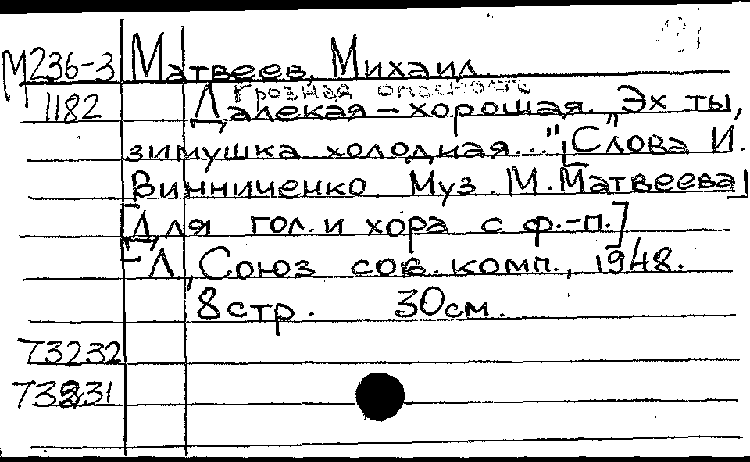 М236-3 Матвеев, Михаил.
Грозная опасность
1182 Далекая – хорошая. "Эх ты,
зимушка холодная..." [Слова И.
Винниченко. Муз. М. Матвеева]
[Для гол. и хора с ф.-п.]
Л., Союз сов. комп., 1948.
8 стр. 30 см.
73232